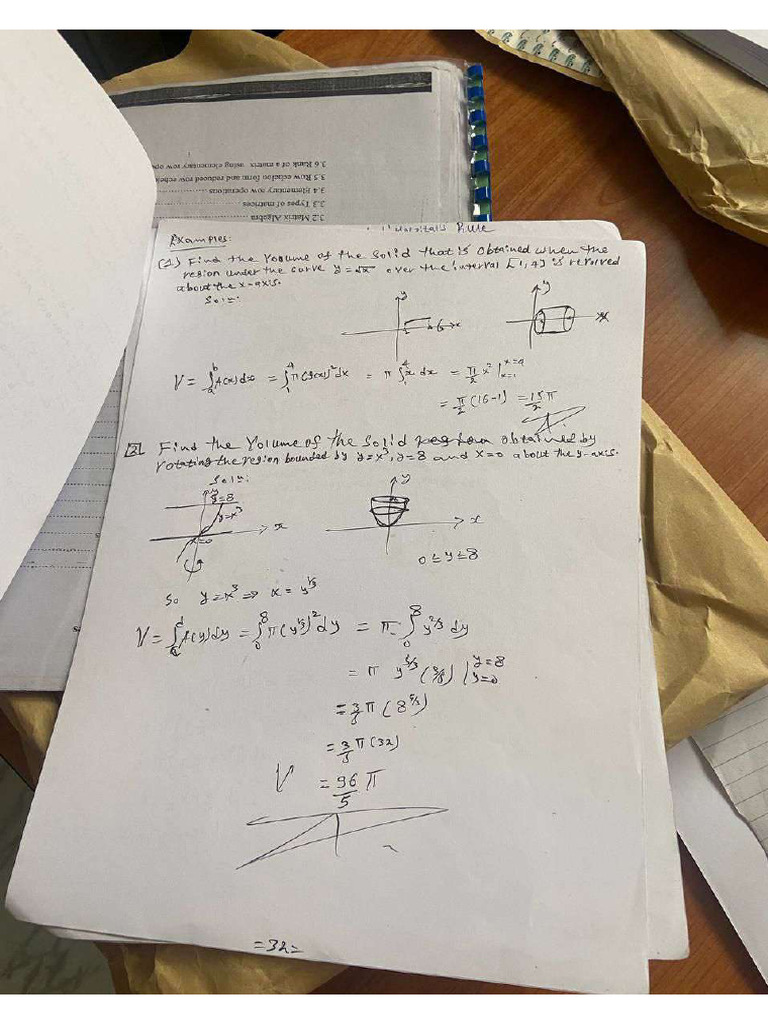 3.6 Rank of a matrix using elementary row ope
3.5 Row echelon form and reduced row echelo
3.4 Elementary row operations
3.3 Types of matrices
3.2 Matrix Algebra
Rule
Examples:
(1) Find the Volume of the Solid that is Obtained when the
region under the curve y=√x over the interval [1,4] is revolved
about the x-axis.
Soln:
y
x
y
x
V = ∫_a^b A(x)dx = ∫_1^4 π(√x)²dx = π∫_1^4 x dx = π/2 x² |_{x=1}^{x=4}
= π/2 (16-1) = 15/2 π
2 Find the Volume of the Solid obtained by
rotating the region bounded by y=x³, y=8 and x=0 about the y-axis.
Soln:
y
y=8
y=x³
x
x=0
y
x
0≤y≤8
So y=x³ ⇒ x = y^{1/3}
V = ∫_c^d A(y)dy = ∫_0^8 π(y^{1/3})² dy = π ∫_0^8 y^{2/3} dy
= π y^{5/3} (3/5) |_{y=0}^{y=8}
= 3/5 π (8^{5/3})
= 3/5 π (32)
V = 96/5 π
=32=